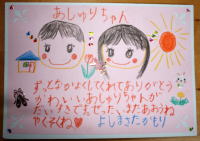 あしゅりちゃん
ずっとなかよくしてくれてありがとう
かわいいあしゅりちゃんが
だいすきです。ぜったいまたあおうね
やくそくね♥ よしまさたかもり